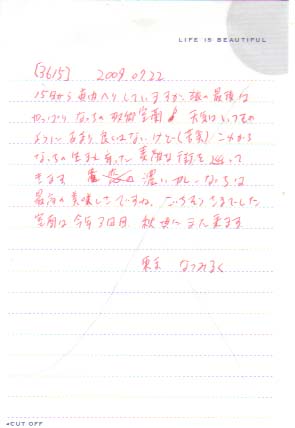 LIFE IS BEAUTIFUL
[3615] 2009.07.22
15日から 道内入りしていますが、旅の最後は
やっぱり なっちの故郷室蘭! 天気はいつもの
ように あまり 良くはないけど(苦笑) これから
なっちの生まれ育った 素敵な街を 巡って
きます 濃い カレー
最高の美味しさですね。 ごちそうさまでした
室蘭は 今年 3回目 秋頃に また 来ます
東京 なつみるく
CUT OFF